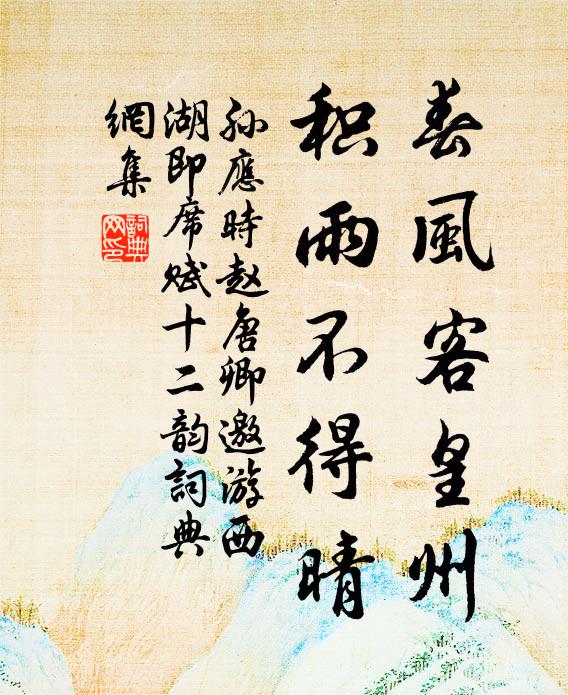 春風客皇州
积雨不得晴
孙應時赵唐卿邀游西
湖即席赋十二韵詞典
網集
詞典
网印